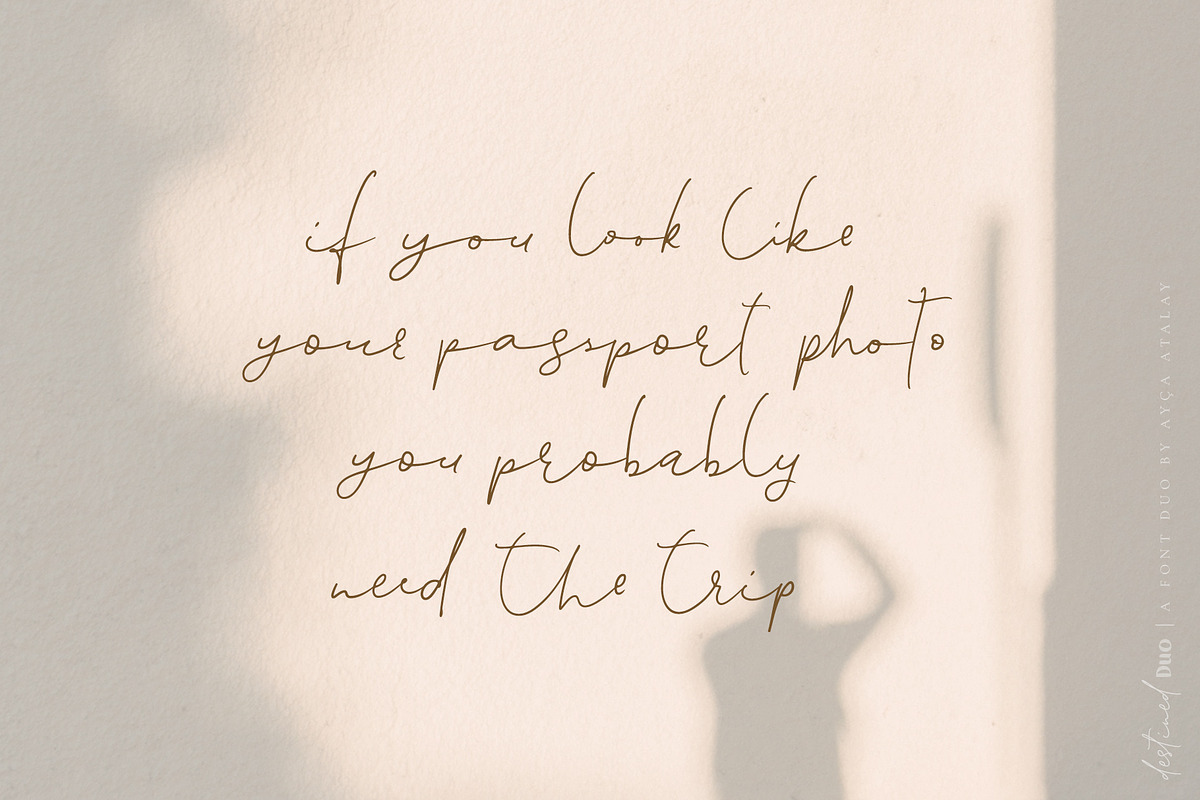 if you look like
your passport photo
you probably
need the trip
destined Duo | A FONT DUO BY AYÇA ATALAY